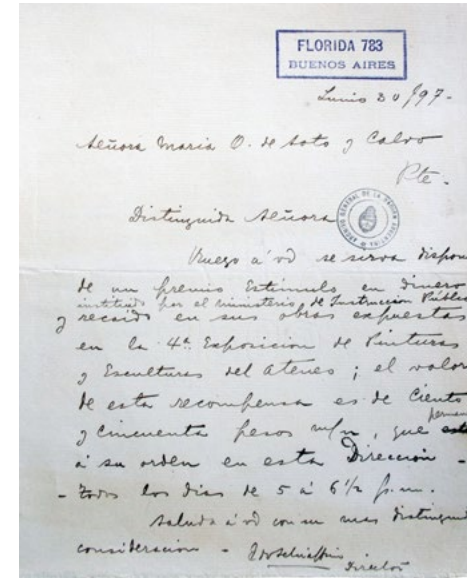 FLORIDA 783
BUENOS AIRES
Junio 30/97-
Señora Maria O. de Soto y Calvo
Pte-
Distinguida Señora
ARCHIVO GENERAL DE LA NACION ARGENTINA
Ruego á vd se sirva dispon
de un premio Estímulo en dinero
instituido por el ministerio de Instruccion Públic
y recaido en sus obras expuestas
en la 4ª Exposicion de Pinturas
y Esculturas del Ateneo; el valor
de esta recompensa es de Ciento
y cincuenta pesos m/n, que
á su orden en esta Direccion -
- Todos los dias de 5 á 6 1/2 p.m.
Saluda á vd con su mas distingui
consideracion - Edo Schiaffino
Director